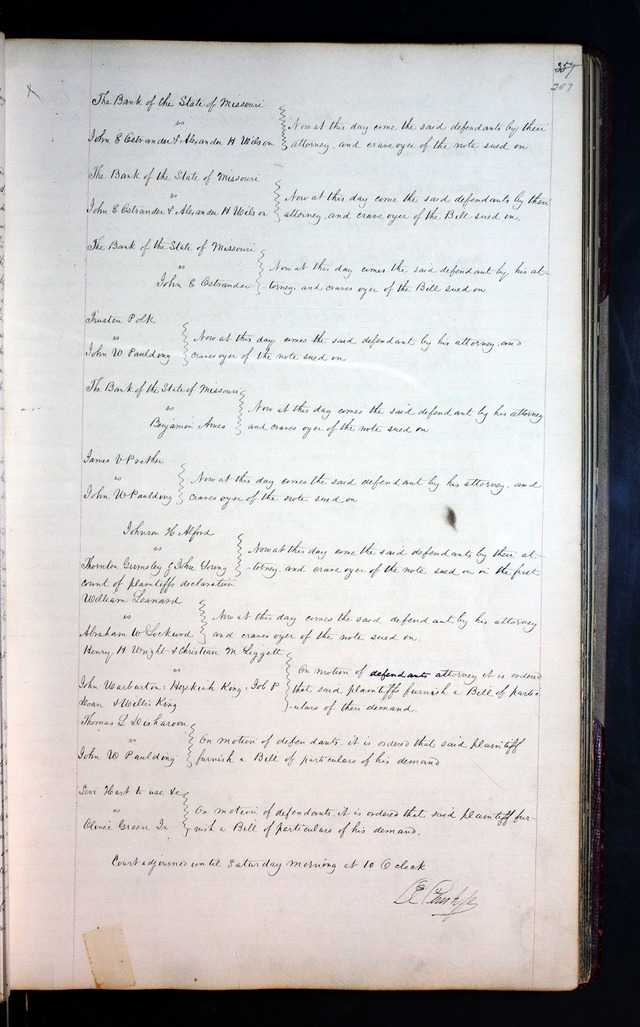 257
257
The Bank of the State of Missouri
vs
John E Ostrander & Alexander H Wilson
Now at this day come the said defendants by their
attorney, and crave oyer of the note sued on
The Bank of the State of Missouri
vs
John E Ostrander & Alexander H Wilson
Now at this day come the said defendants by their
attorney, and crave oyer of the Bill sued on.
The Bank of the State of Missouri
vs
John E Ostrander
Now at this day comes the said defendant by his at-
torney, and craves oyer of the Bill sued on
Trusten Polk
vs
John W Paulding
Now at this day comes the said defendant by his attorney, and
craves oyer of the note sued on
The Bank of the State of Missouri
vs
Benjamin Ames
Now at this day comes the said defendant by his attorney
and craves oyer of the note sued on
James V Prather
vs
John W Paulding
Now at this day comes the said defendant by his attorney, and
craves oyer of the note sued on
Johnson H Alford
vs
Thornton Grimsley & John Young
Now at this day come the said defendants by their at-
torney, and crave oyer of the note sued on in the first
count of plaintiffs declaration
William Leonard
vs
Abraham W Lockwood
Now at this day comes the said defendant by his attorney
and craves oyer of the note sued on.
Henry H Wright & Christian M Leggett
vs
John Warburton, Hezekiah King, Job P
Doan & Willis King
On motion of defendants attorney it is ordered
that said plaintiffs furnish a Bill of parti-
culars of their demand.
Thomas L Disharoon
vs
John W Paulding
On motion of defendants, it is ordered that said plaintiff
furnish a Bill of particulars of his demand
Levi Hart to use &c
vs
Oliver Green Jr
On motion of defendants, it is ordered that said plaintiff fur-
nish a Bill of particulars of his demand.
Court adjourned until Saturday morning at 10 O clock